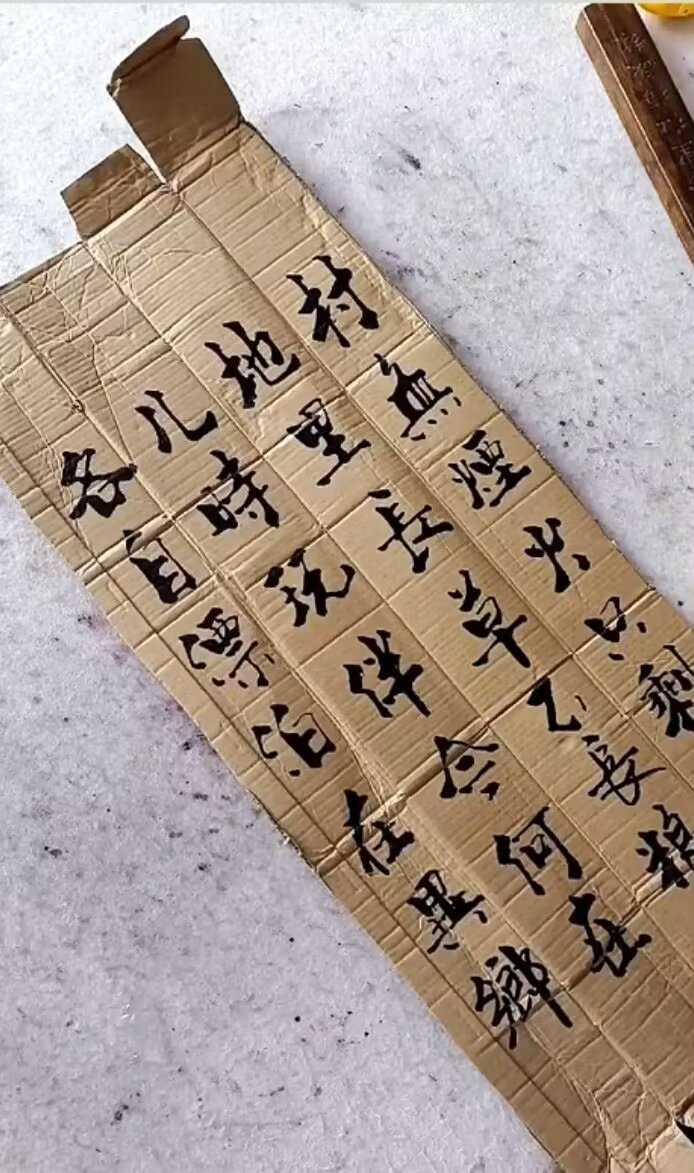 村無煙火只剩
地里長草不長粮
儿時玩伴今何在
各自漂泊在異鄉